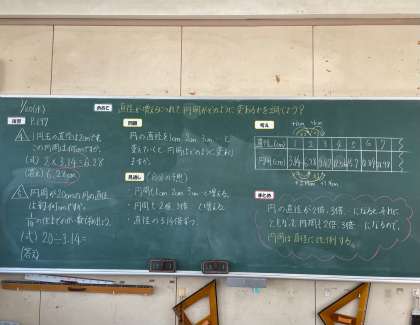 1/20(水)
めあて 直径が増えるにつれて円周がどのように変わるかを調べよう?
復習 P.197
1円玉の直径は2cmです。
この円周は何cmですか。
(式) 2×3.14=6.28
(答え) 6.28cm
円周が20cmの円の直径
は約何cmですか。
(式) 20÷3.14=
(答え)
問題
円の直径を1cm、2cm、3cm、と
変えていくと、円周はどのように変わり
ますか。
見通し (自分の予想)
・円周も1cm、2cm、3cm…と増える。
・円周も2倍、3倍…と増える。
・直径の3.14倍ずつ
考え
直径(cm) 1 2 3 4 5 6 7
円周(cm) 3.14 6.28 9.42 12.56 15.7 18.84 21.98
まとめ
円の直径が2倍、3倍…になると、それに
ともなって円周も2倍、3倍…になるので、
円周は直径に比例する。